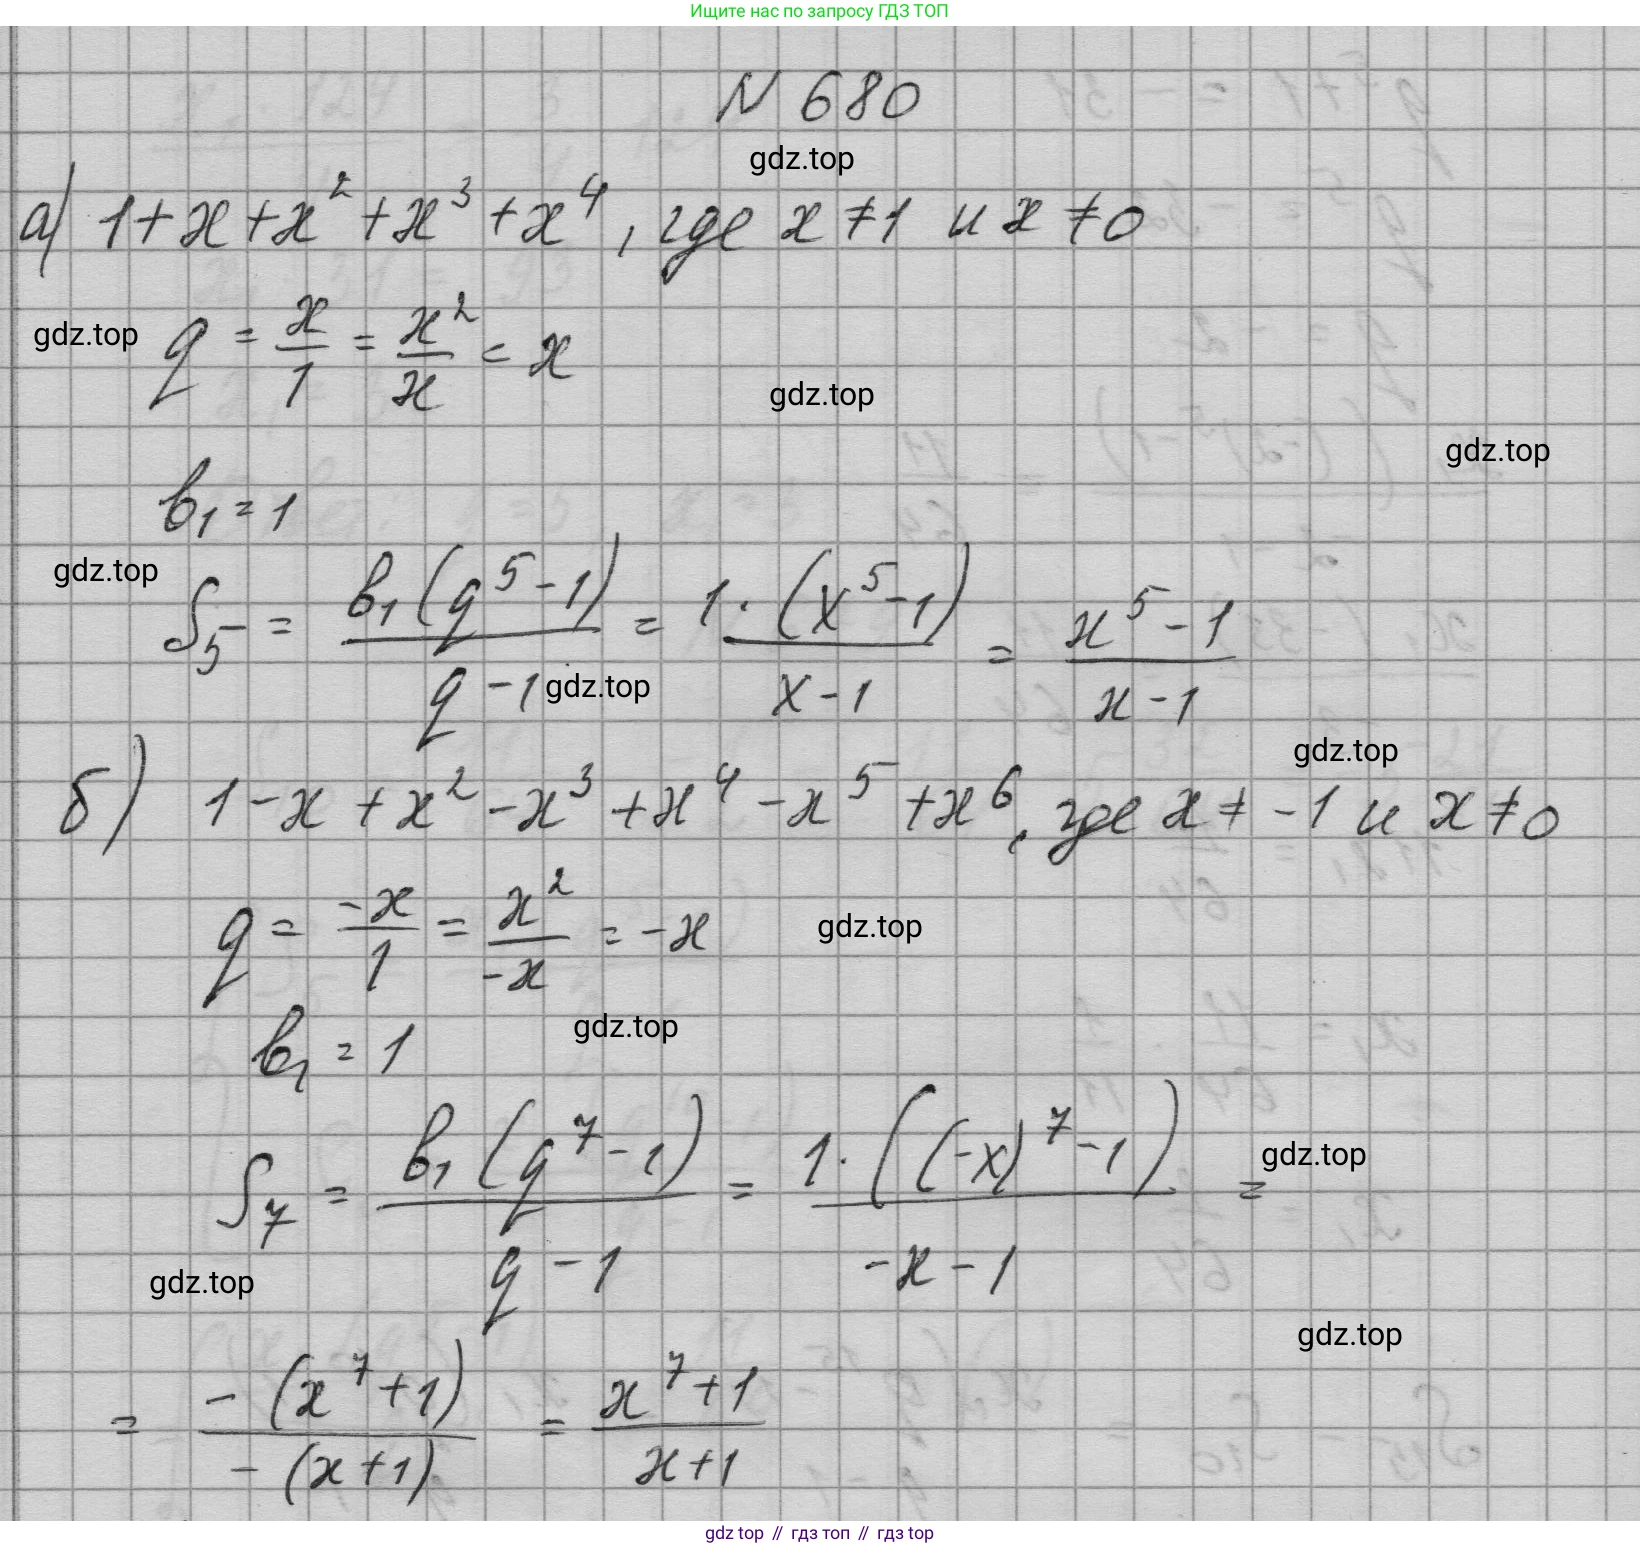 Ищите нас по запросу ГДЗ ТОП
N 680
gdz.top
а) 1 + x + x² + x³ + x⁴, где x ≠ 1 и x ≠ 0
gdz.top q = x/1 = x²/x = x
gdz.top
gdz.top
b₁ = 1
gdz.top
S₅ = b₁(q⁵ - 1)/(q - 1) = 1·(x⁵ - 1)/(x - 1) = (x⁵ - 1)/(x - 1)
gdz.top
gdz.top
б) 1 - x + x² - x³ + x⁴ - x⁵ + x⁶, где x ≠ -1 и x ≠ 0
q = -x/1 = x²/-x = -x gdz.top
gdz.top
b₁ = 1
gdz.top
S₇ = b₁(q⁷ - 1)/(q - 1) = 1·((-x)⁷ - 1)/(-x - 1) =
gdz.top
gdz.top
= -(x⁷ + 1)/-(x + 1) = (x⁷ + 1)/(x + 1)
gdz top // гдз топ // гдз top